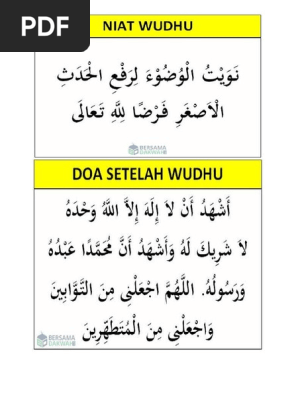 PDF
NIAT WUDHU
نَوَيْتُ الْوُضُوْءَ لِرَفْعِ الْحَدَثِ
الْاَصْغَرِ فَرْضًا لِلّٰهِ تَعَالَى
BERSAMA
DAKWAH
DOA SETELAH WUDHU
أَشْهَدُ أَنْ لاَ إِلَهَ إِلاَّ اللَّهُ وَحْدَهُ
لاَ شَرِيكَ لَهُ وَأَشْهَدُ أَنَّ مُحَمَّدًا عَبْدُهُ
وَرَسُولُهُ. اللَّهُمَّ اجْعَلْنِى مِنَ التَّوَّابِينَ
وَاجْعَلْنِى مِنَ الْمُتَطَهِّرِينَ
BERSAMA
DAKWAH